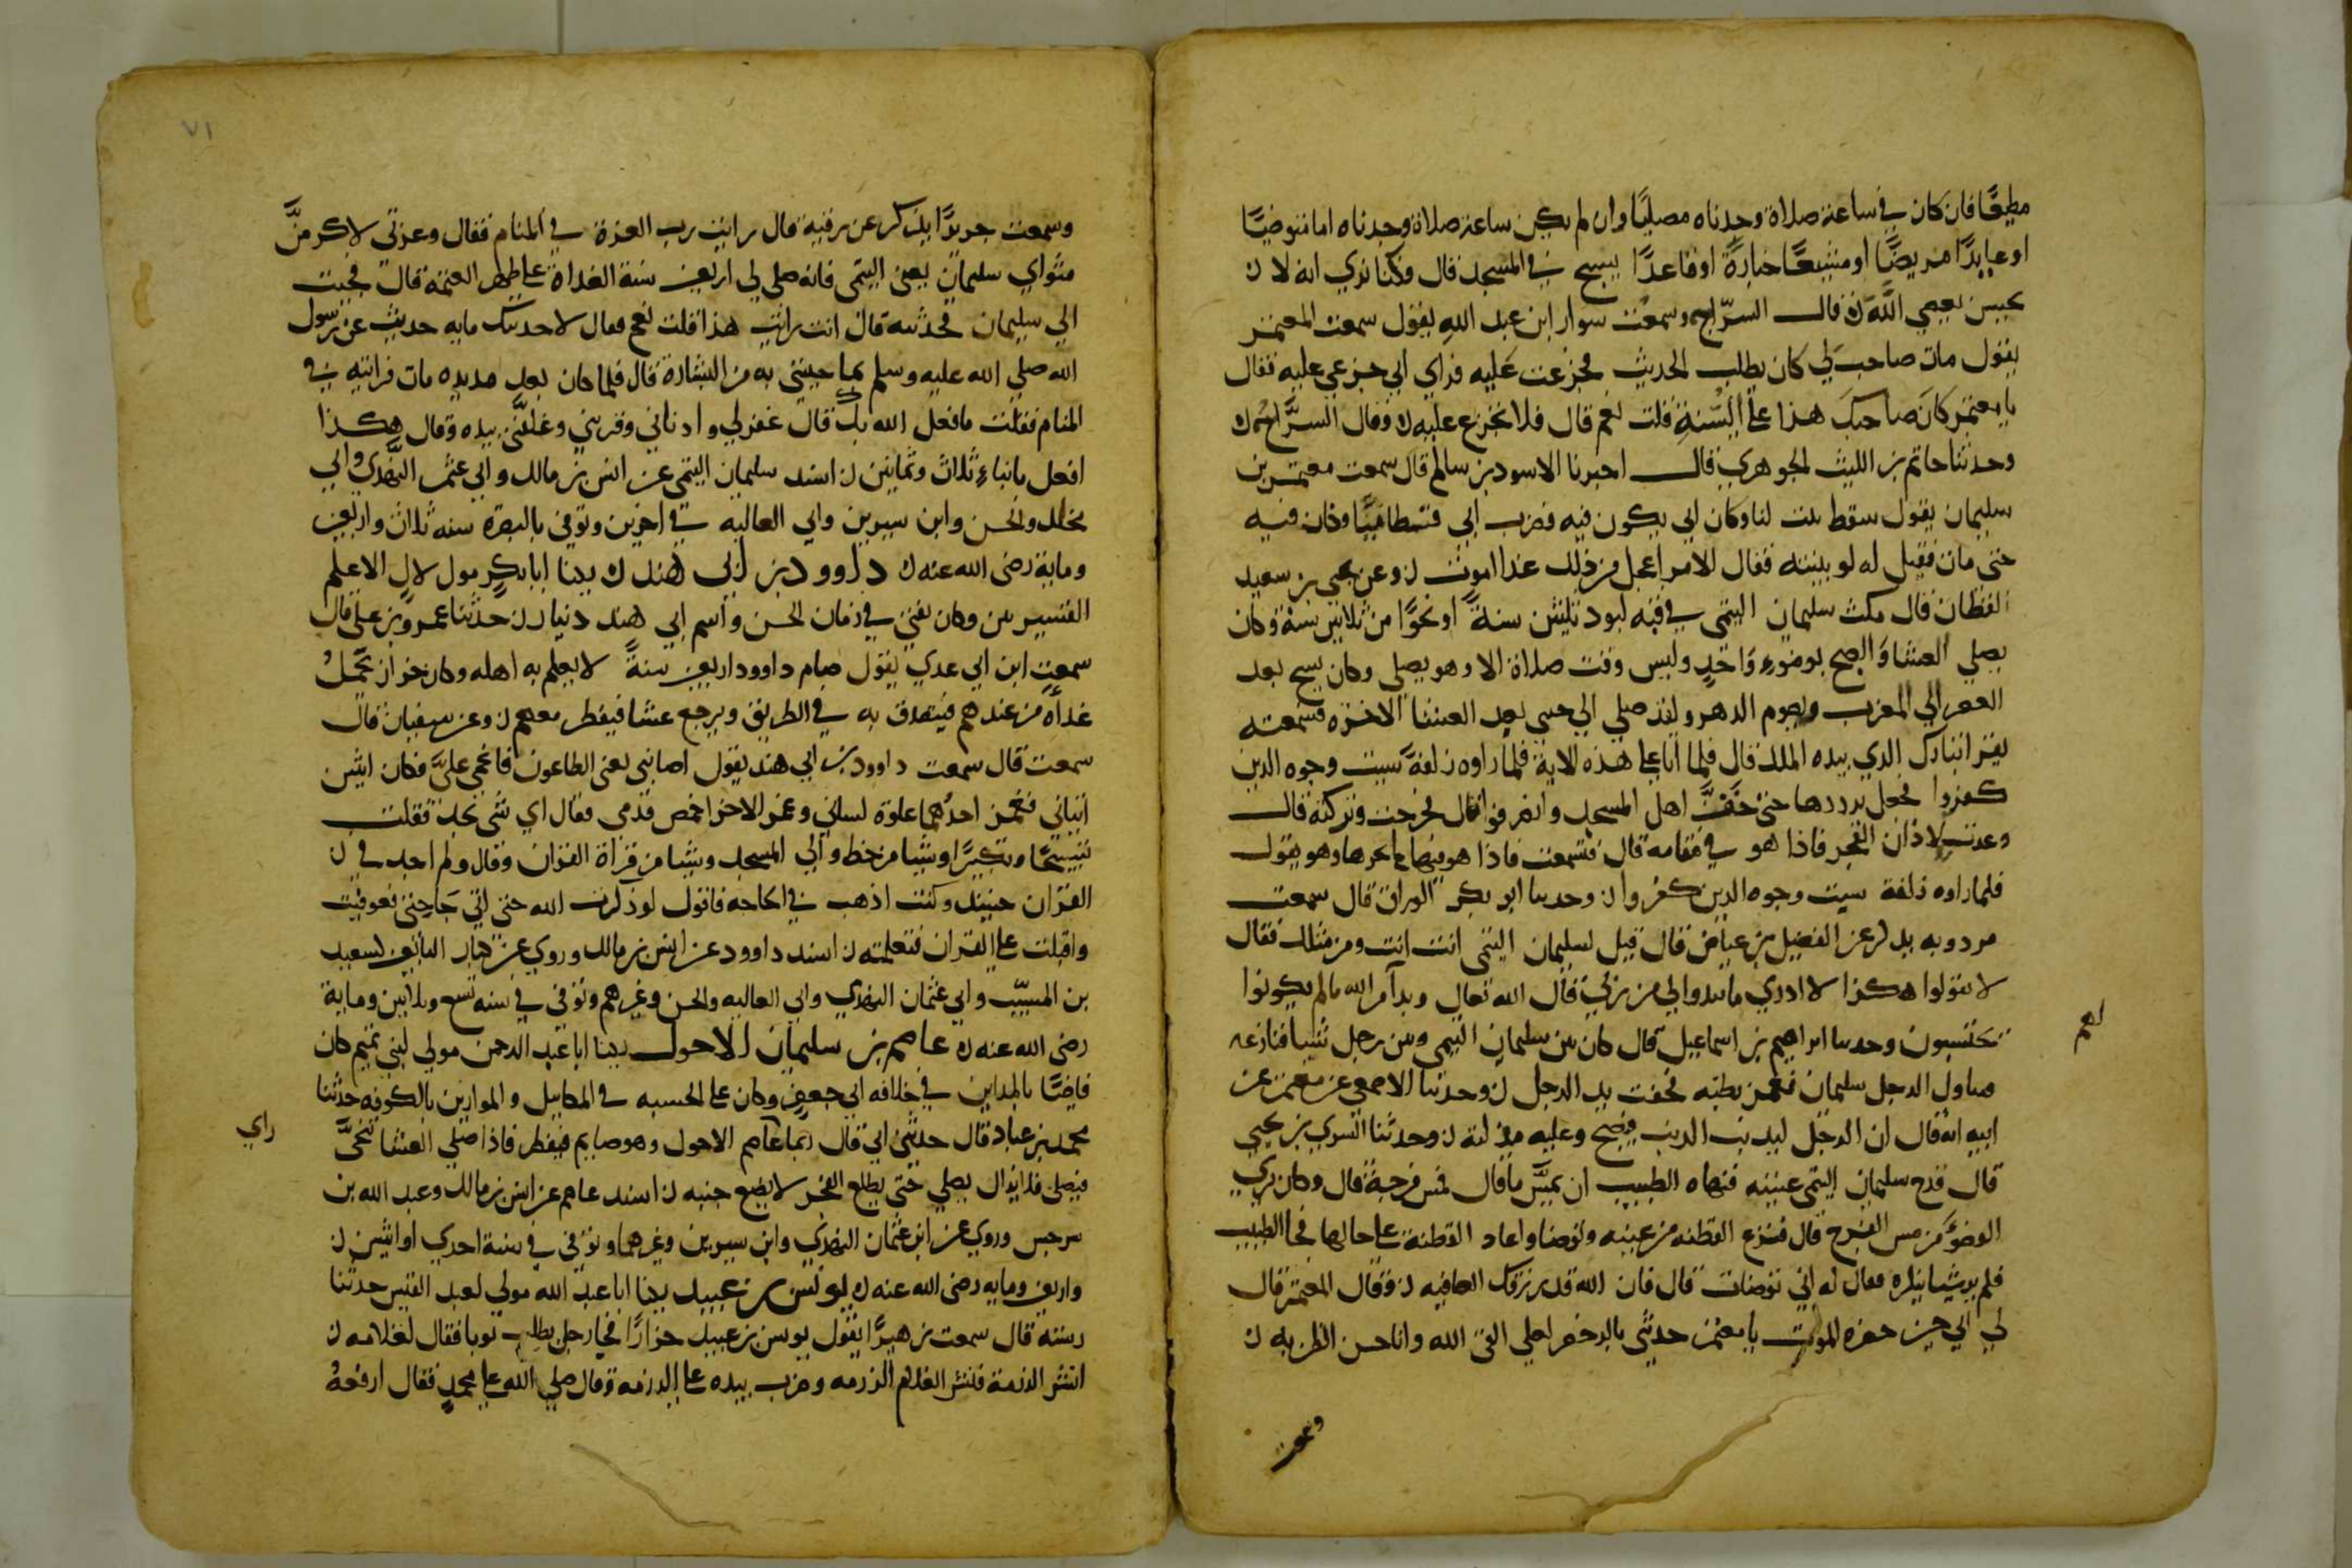 مطيعًا فان كان في ساعة صلاة وجدناه مصليًا وان لم يكن ساعة صلاة وجدناه اما متوضيًا
او عايدًا مريضًا او مشيعًا جنازةً او قاعدًا يسبح في المسجد قال وكنا نري انه لا
يحسن يعصي اللّٰه قال السرّاج وسمعت سوار ابن عبد الله يقول سمعت المعتمر
يقول مات صاحب لي كان يطلب الحديث فجزعت عليه فراي ابي جزعي عليه فقال
يا معتمر كان صاحبك هذا علي السنة قلت نعم قال فلا تجزع عليه وقال السرَّاج
وحدثنا حاتم بن الليث الجوهري قال اخبرنا الاسود بن سالم قال سمعت معتمر بن
سليمان يقول سقط بيت لنا وكان ابي يكون فيه فضرب ابي فسطاطًا وكان فيه
حتي مات فقيل له لو بنيته فقال الامر اعجل من ذلك غدا اموت وعن يحيي بن سعيد
القطان قال مكث سليمان التيمي في قبه لبود ثلثين سنةً او نحوًا من ثلاثين سنة وكان
يصلي العشا والصبح بوضوء واحدٍ وليس وقت صلاة الا وهو يصلي وكان يسبح بعد
العصر الي المغرب ويصوم الدهر ولقد صلي الي جنبي بعد العشا الاخره فسمعته
يقرا تبارك الذي بيده الملك قال فلما اتا علي هذه الاية فلما راوه زلفةً سيت وجوه الذين
كفروا فجعل يرددها حتي خفَّ اهل المسجد وانصرفوا قال فخرجت وتركته قال
وعدت لاذان الفجر فاذا هو في مقامه قال فسمعت فاذا هو فيها لم يجزها وهو يقول
فلما راوه زلفة سيت وجوه الذين كفروا وحدثنا ابو بكر الوراق قال سمعت
مردويه يذكر عن الفضيل بن عياض قال قيل لسليمان التيمي انت انت ومن مثلك فقال
لا تقولوا هكذا لا ادري ما يبدوا لي من ربي قال الله تعالي وبدا لهم من الله ما لم يكونوا
يحتسبون وحدثنا ابراهيم بن اسماعيل قال كان بين سليمان التيمي وبين رجل شيا فنازعه
فتناول الرجل سليمان فغمز بطنه فجفت يد الرجل وحدثنا الاصمعي عن معتمر عن
ابيه انه قال ان الرجل ليذنب الذنب فيصبح وعليه مذلته وحدثنا السري بن يحيي
قال قدح سليمان التيمي عينيه فنهاه الطبيب ان يمسَّ ما قال فمس فرجه قال وكان يري
الوضؤ من مس الفرج قال فنزع القطنه من عينيه وتوضا واعاد القطنة علي حالها فجا الطبيب
فلم ير شيا ينكره فقال له اني توضات قال فان الله قد رزقك العافيه وقال المعتمر قال
لي ابي حين حضره الموت يا معتمر حدثني بالرخص لعلي القي الله وانا حسن الظن به
وسمعت
وسمعت جريرًا يذكر عن رقبة قال رايت رب العزة في المنام فقال وعزتي لاكرمنَّ
مثواي سليمان يعني التيمي فانه صلي لي اربعين سنة الغداة علي طهر العتمة قال فجيت
الي سليمان فحدثته قال انت رايت هذا قلت نعم فقال لاحدثنك مايه حديث عن رسول
الله صلي الله عليه وسلم بما جيتني به من البشارة قال فلما كان بعد مديده مات فرايته في
المنام فقلت ما فعل الله بك قال غفر لي وادناني وقربني وغلفني بيده وقال هكذا
افعل بابناء ثلاث وثمانين اسند سليمان التيمي عن انس بن مالك وابي عثمن النهدي وابي
مجلز والحسن وابن سيرين وابي العاليه في اخرين وتوفي بالبصره سنه ثلاث واربعين
وماية رضي الله عنه داوود بن ابي هند يكنا ابا بكر مولي لال الاعلم
القشيريين وكان يفتي في زمان الحسن واسم ابي هند دينار حدثنا عمرو بن علي قال
سمعت ابن ابي عدي يقول صام داوود اربعين سنةً لا يعلم به اهله وكان خرازا يحمل
غداه من عندهم فيتصدق به في الطريق ويرجع عشا فيفطر معهم وعن سفيان قال
سمعت قال سمعت داوود بن ابي هند يقول اصابني يعني الطاعون فاغمي عليَّ فكان اثنين
اتياني فغمز احدهما علوة لساني وغمز الاخر اخمص قدمي فقال اي شي تجد فقلت
تسبيحًا وتكبيرًا وشيا من خطو الي المسجد وشيا من قراة القران وقال ولم اجد في
القران حينيذ وكنت اذهب في الحاجه فاقول لو ذكرت الله حتي اتي حاجتي فعوفيت
واقبلت علي القران فتعلمته اسند داوود عن انس بن مالك وروي عن كبار التابعين كسعيد
بن المسيّب وابي عثمان النهدي وابي العاليه والحسن وغيرهم وتوفي في سنه تسع وثلاثين وماية
رضي الله عنه عاصم بن سليمان الاحول يكنا ابا عبد الرحمن مولي لبني تميم كان
قاضيًا بالمداين في خلافه ابي جعفر وكان علي الحسبه في المكاييل والموازين بالكوفه حدثنا
محمد بن عباد قال حدثني ابي قال ربما عاصم الاحول وهو صايم فيفطر فاذا صلي العشا تنحَّي
راي
فيصلي فلا يزال يصلي حتي يطلع الفجر لا يضع جنبه اسند عاصم عن انس بن مالك وعبد الله بن
سرجس وروي عن ابي عثمان النهدي وابن سيرين وغيرهما وتوفي في سنة احدي او اثنين
واربعين ومايه رضي الله عنه يونس بن عبيد يكنا ابا عبد الله مولي لعبد القيس حدثنا
رسته قال سمعت زهيرًا يقول يونس بن عبيد خزازًا فجا رجل يطلب ثوبا فقال لغلامه
انشر الرزمة فنشر الغلام الرزمه وضرب بيده علي الرزمه وقال صلي الله علي محمدٍ فقال ارفعهُ
٧١